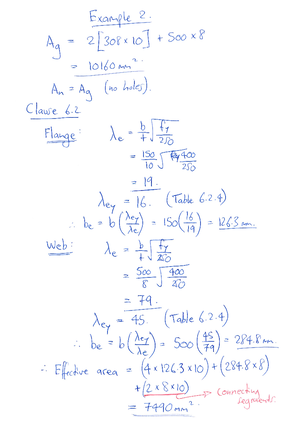 Example 2.
Ag = 2[308×10] + 500×8
= 10160 mm².
An = Ag (no holes).
Clause 6.2
Flange: λe = b/t √(fy/250)
= 150/10 √(400/250)
= 19.
λey = 16. (Table 6.2.4)
∴ be = b(λey/λe) = 150(16/19) = 126.3 mm.
Web: λe = b/t √(fy/250)
= 500/8 √(400/250)
= 79.
λey = 45. (Table 6.2.4)
∴ be = b(λey/λe) = 500(45/79) = 284.8 mm.
∴ Effective area = (4×126.3×10) + (284.8×8)
+ (2×8×10) → connecting segments.
= 7490 mm².